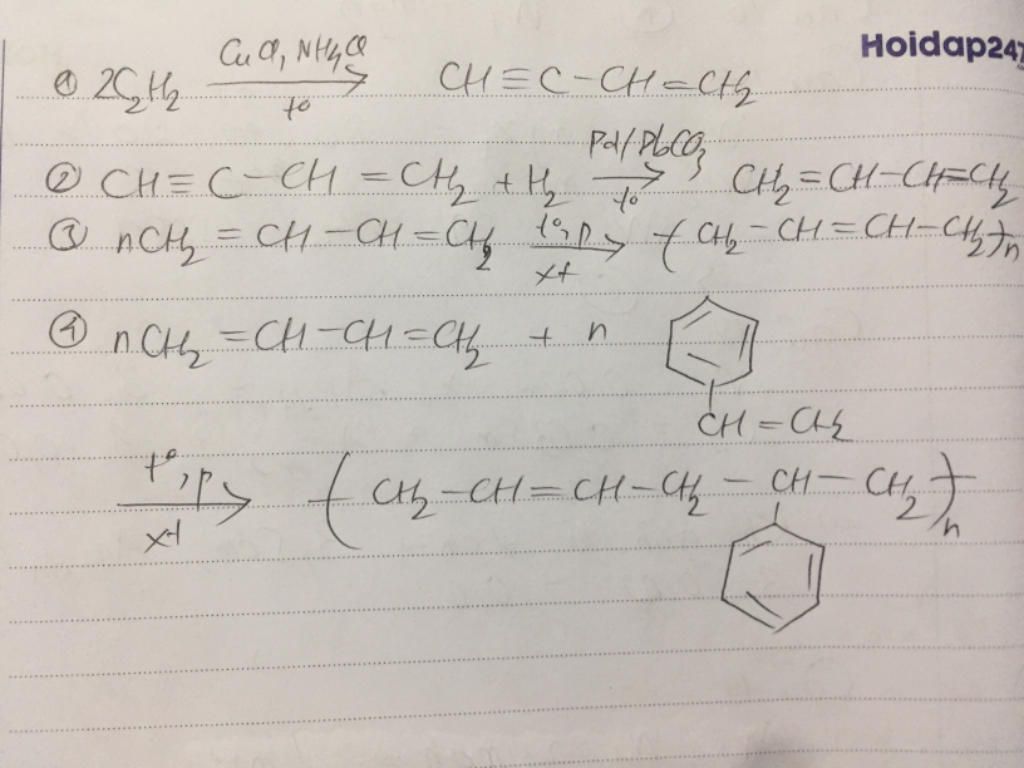 Hoidap247
① 2C₂H₂ CuCl, NH₄Cl → t° CH≡C-CH=CH₂
② CH≡C-CH=CH₂ + H₂ Pd/PbCO₃ → t° CH₂=CH-CH=CH₂
③ nCH₂=CH-CH=CH₂ t°, p → xt (CH₂-CH=CH-CH₂)n
④ nCH₂=CH-CH=CH₂ + n
CH=CH₂
t°, p → xt (CH₂-CH=CH-CH₂-CH-CH₂)n